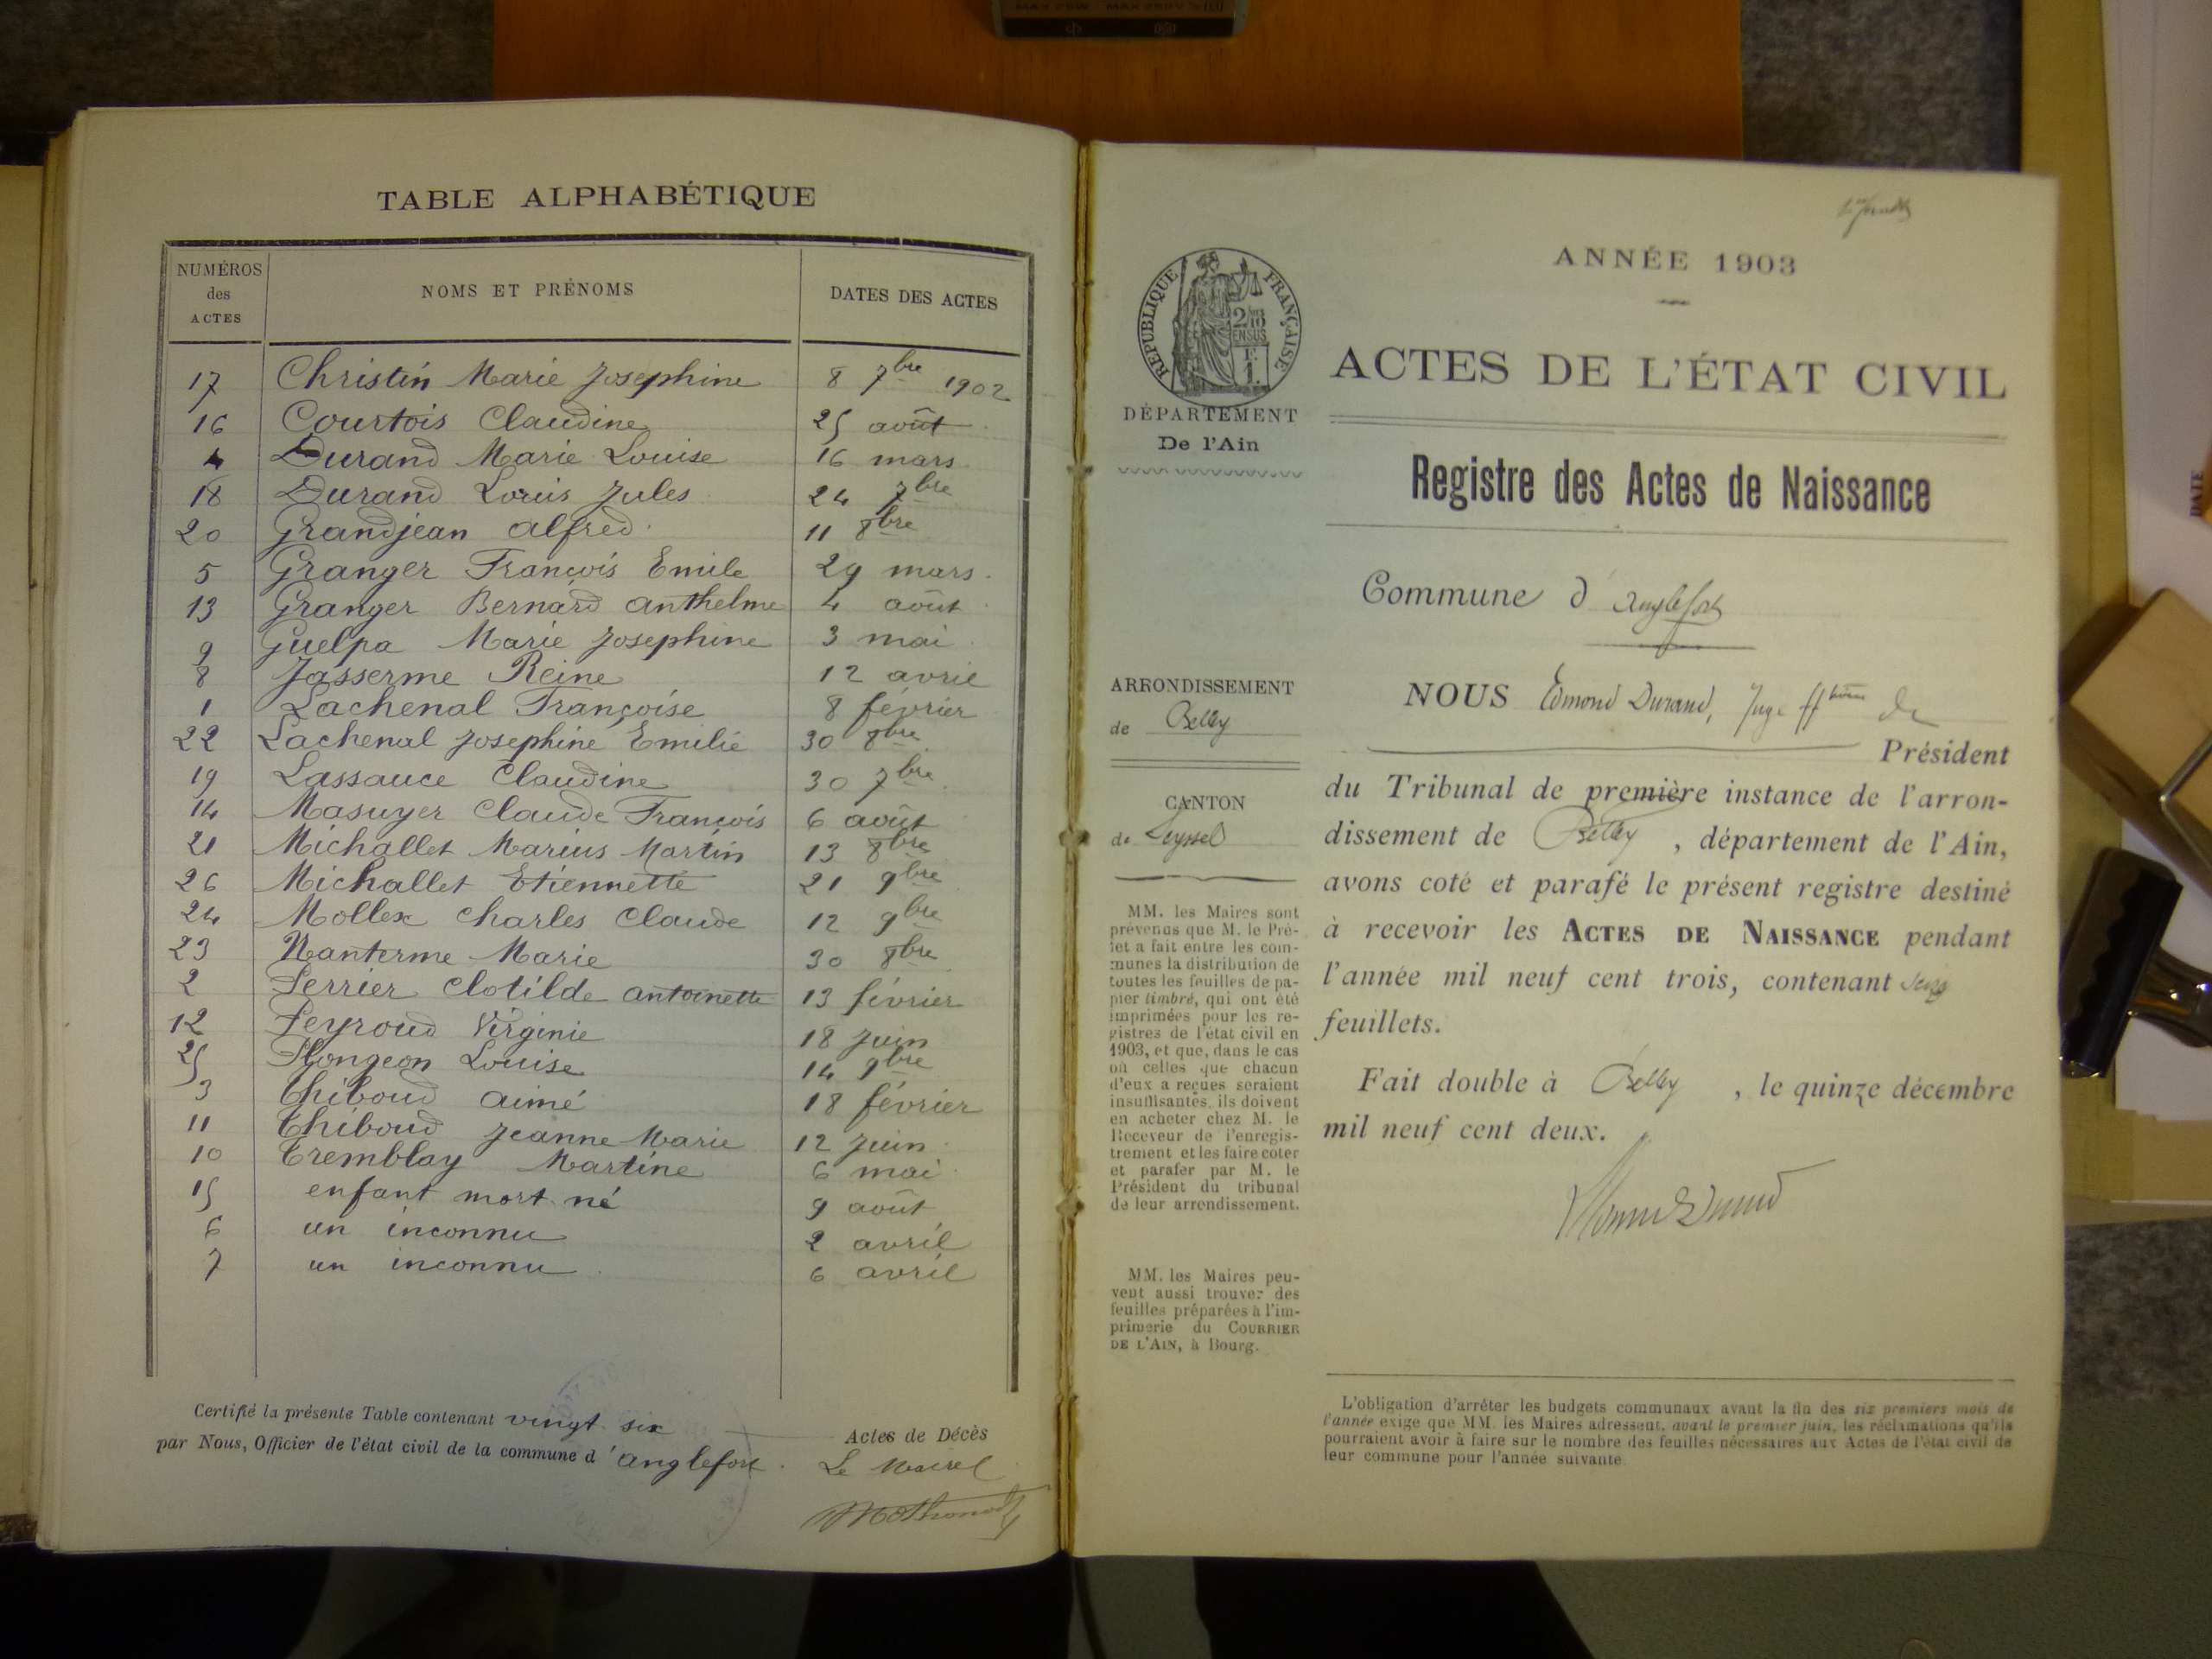 TABLE ALPHABÉTIQUE
NUMÉROS des ACTES NOMS ET PRÉNOMS DATES DES ACTES
17 Christin Marie Josephine 8 7bre 1902
16 Courtois Claudine 25 août
4 Durand Marie Louise 16 mars
18 Durand Louis Jules 24 7bre
20 Grandjean Alfred 11 8bre
5 Granger François Emile 29 mars
13 Granger Bernard Anthelme 4 août
9 Guelpa Marie Josephine 3 mai
8 Jasserme Reine 12 avril
1 Lachenal Françoise 8 février
22 Lachenal Josephine Emilie 30 8bre
19 Lassauce Claudine 30 7bre
14 Masuyer Claude François 6 août
21 Michallet Marius Martin 13 8bre
26 Michallet Etiennette 21 9bre
24 Mollex Charles Claude 12 9bre
23 Nanterme Marie 30 8bre
2 Perrier Clotilde Antoinette 13 février
12 Peyroud Virginie 18 juin
25 Pongeon Louise 14 9bre
3 Thiboud Aimé 18 février
11 Thiboud Jeanne Marie 12 juin
10 Tremblay Martine 6 mai
15 enfant mort né 9 août
6 un inconnu 2 avril
7 un inconnu 6 avril
Certifié la présente Table contenant vingt six Actes de Décès
par Nous, Officier de l'état civil de la commune d'Anglefort. Le Maire
RÉPUBLIQUE FRANÇAISE
DÉPARTEMENT
De l'Ain
ARRONDISSEMENT
de Belley
CANTON
de Seyssel
MM. les Maires sont
prévenus que M. le Pré-
fet a fait entre les com-
munes la distribution de
toutes les feuilles de pa-
pier timbré, qui ont été
imprimées pour les re-
gistres de l'état civil en
1903, et que, dans le cas
où celles que chacun
d'eux a reçues seraient
insuffisantes, ils doivent
en acheter chez M. le
Receveur de l'enregis-
trement et les faire coter
et parafer par M. le
Président du tribunal
de leur arrondissement.
MM. les Maires peu-
vent aussi trouver des
feuilles préparées à l'im-
primerie du COURRIER
DE L'AIN, à Bourg.
ANNÉE 1903
ACTES DE L'ÉTAT CIVIL
Registre des Actes de Naissance
Commune d'Anglefort
NOUS Edmond Durand, Juge ff de
Président
du Tribunal de première instance de l'arron-
dissement de Belley, département de l'Ain,
avons coté et parafé le présent registre destiné
à recevoir les ACTES DE NAISSANCE pendant
l'année mil neuf cent trois, contenant
feuillets.
Fait double à Belley, le quinze décembre
mil neuf cent deux.
L'obligation d'arrêter les budgets communaux avant la fin des six premiers mois de
l'année exige que MM. les Maires adressent, avant le premier juin, les réclamations qu'ils
pourraient avoir à faire sur le nombre des feuilles nécessaires aux Actes de l'état civil de
leur commune pour l'année suivante.
DATE